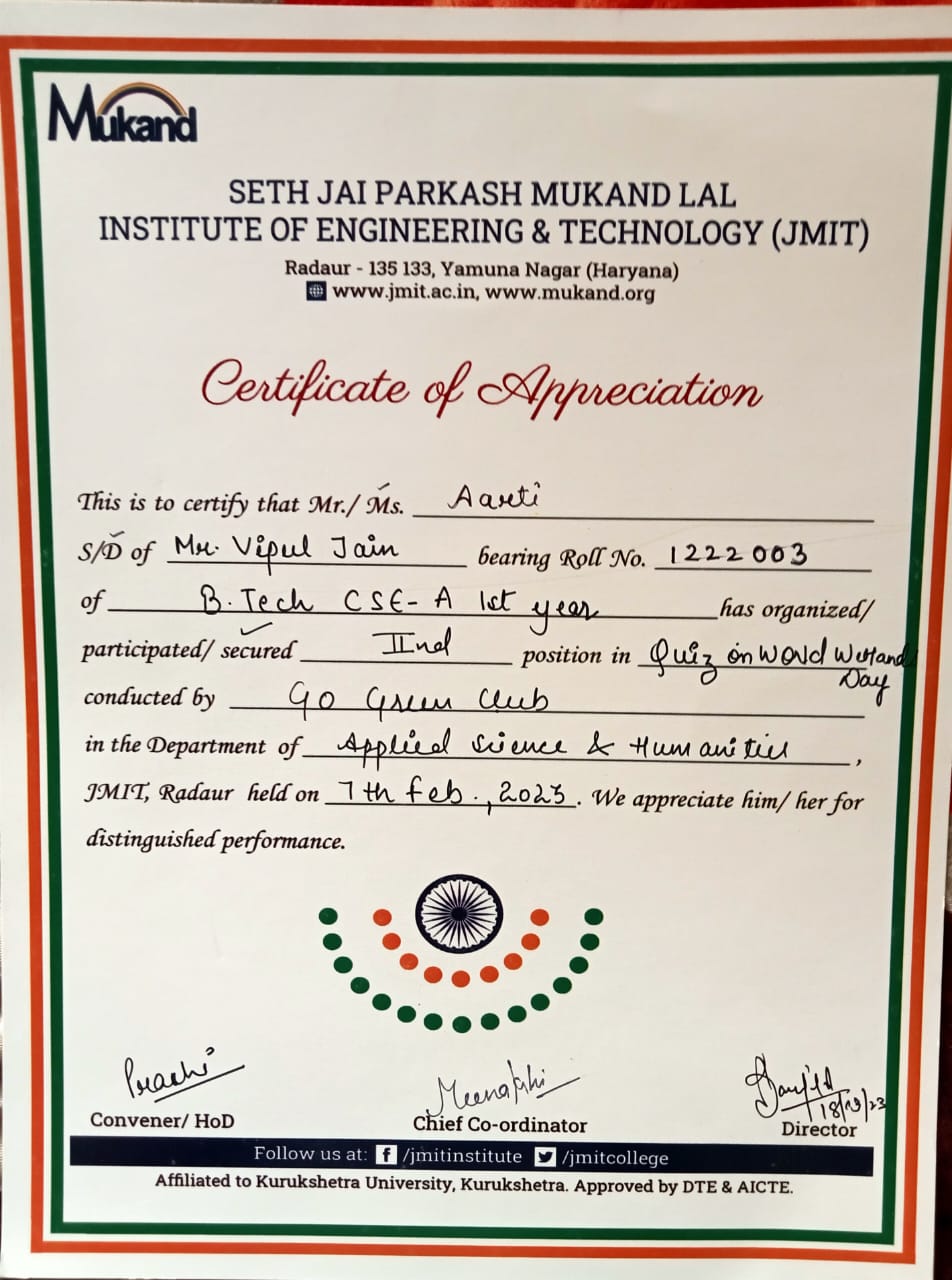 Mukand
SETH JAI PARKASH MUKAND LAL
INSTITUTE OF ENGINEERING & TECHNOLOGY (JMIT)
Radaur - 135 133, Yamuna Nagar (Haryana)
www.jmit.ac.in, www.mukand.org
Certificate of Appreciation
This is to certify that Mr./ Ms. Aarti
S/D of Mr. Vipul Jain bearing Roll No. 1222003
of B.Tech CSE-A 1st year has organized/
participated/ secured IInd position in Quiz on World Wetland
Day
conducted by Go Green Club
in the Department of Applied Science & Humanities,
JMIT, Radaur held on 7th Feb., 2023. We appreciate him/ her for
distinguished performance.
Prachi
Meenakshi
Convener/ HoD
Chief Co-ordinator
Director
Follow us at: f /jmitinstitute /jmitcollege
Affiliated to Kurukshetra University, Kurukshetra. Approved by DTE & AICTE.